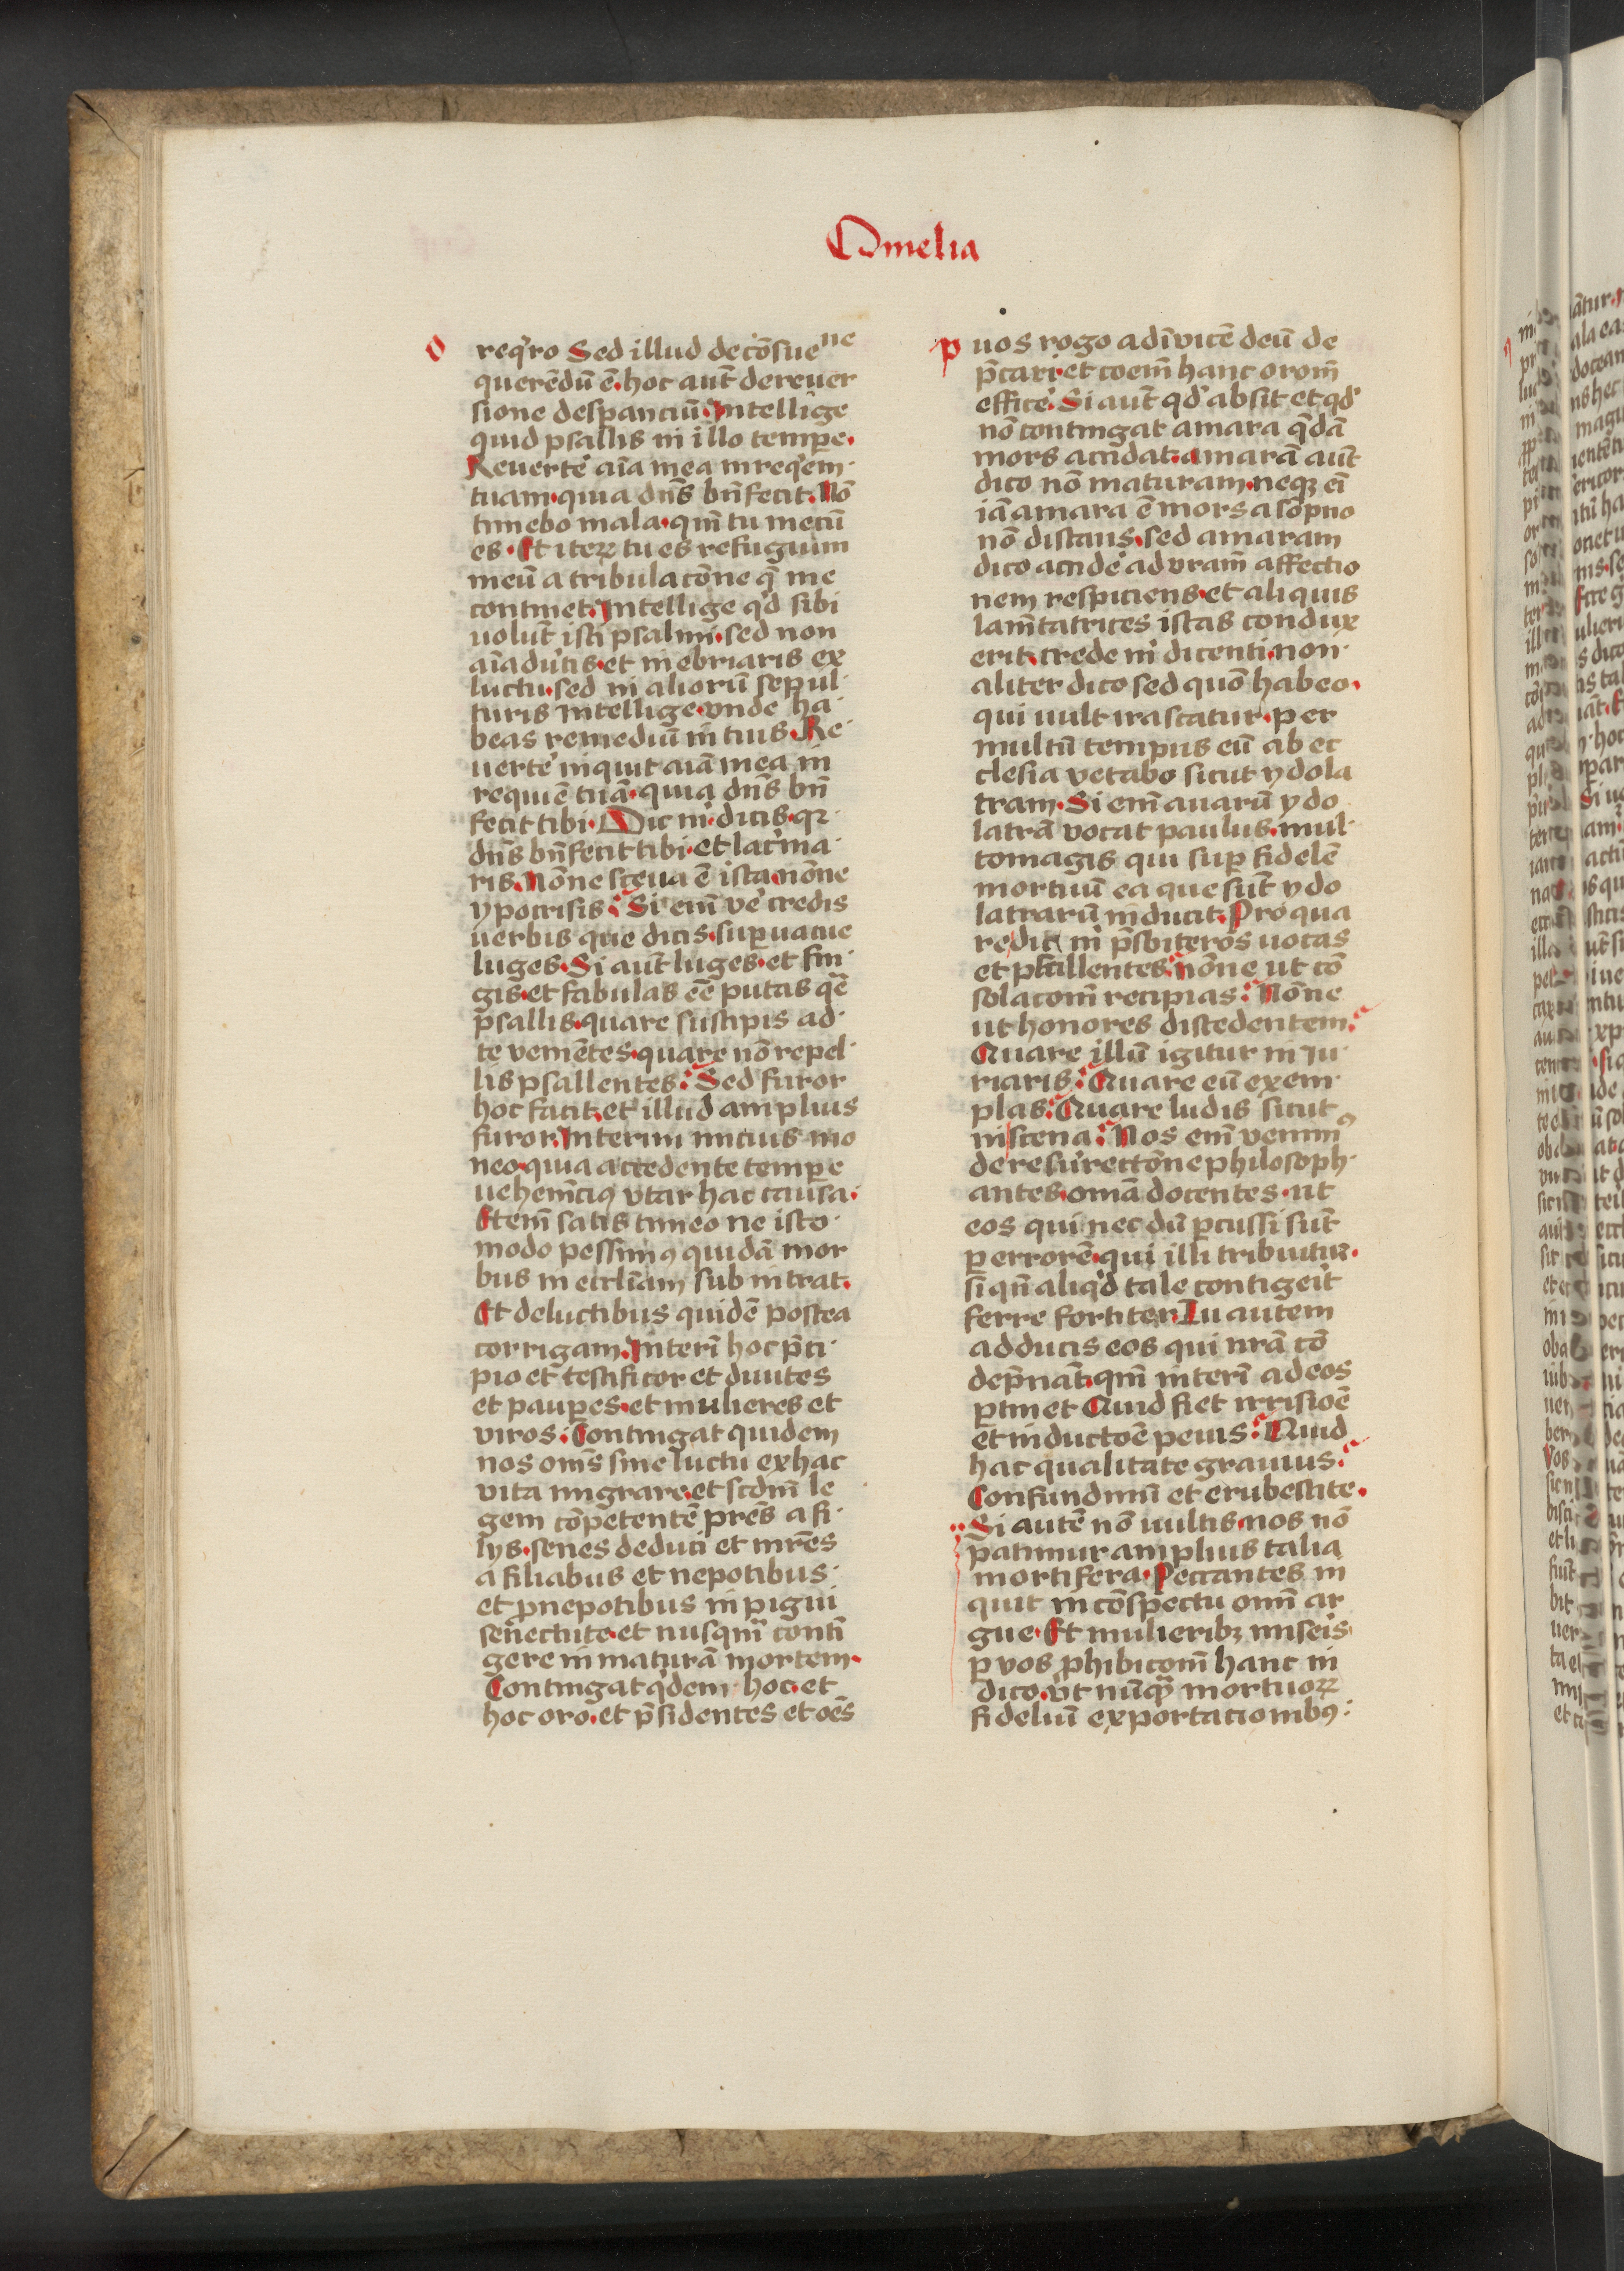 Omelia
o
req'ro Sed illud de cōsue ne
querēdū ē. hoc aut̄ de reuer
sione desperanciū. Intellige
quid psallis in illo tempe.
Reuerte aīa mea in req'em
tuam. quia dn̄s bn̄fecit. Nō
timebo mala. qm̄ tu mecū
es. Et iteꝝ tu es refugium
meū a tribulacōne q̄ me
continet. Intellige q'd sibi
uolūt isti psalmi. sed non
aīaduʼtis. et inebriaris ex
luctu. sed in aliorū sepul
turis Intellige. vnde ha
beas remediū in tuis. Re
uerte inquit aīa mea in
requiē tuā. quia dn̄s bn̄
fecit tibi. Dic mʼ. dicis. qꝛ
dn̄s bn̄fecit tibi. et lac'ma
ris. Nōne sceua ē ista. nōne
ypocrisis. Si em̄ ve' credis
uerbis que dicis. superuacue
luges. Si aut̄ luges. et fin
gis. et fabulas eē putas q̄
psallis. quare suscipis ad
te veniētes. quare nō repel
lis psallentes. Sed furor
hoc facit. et illud amplius
furor. Interim micius mo
neo. quia accedente tempe
uehem̄ciꝰ vtar hac causa.
Item̄ satis timeo ne isto
modo pessimꝰ quidā mor
bus in eccl̄iam sub intrat.
Et de luctibus quidē postea
corrigam. Interī hoc p̄ci
pio et testificor et diuites
et paupes. et mulieres et
viros. Contingat quidem
nos om̄s sine luctu ex hac
vita migrare. et scdm̄ le
gem cōpetentē pr̄es a fi
lys. senes deduci et mr̄es
a filiabus et nepotibus
et pnepotibus in pigui
senectute. et nusqm̄ conti
gere in maturā mortem.
Contingat q'dem hoc. et
hoc oro. et p̄sidentes et oēs
p
uos rogo ad īvicē deū de
p̄cari. et coem̄ hanc orom̄
effice'. Si aut̄ qd' absit et qd'
nō contingat amara q̄dā
mors accidat. amarā aut̄
dico nō maturam. neqꝫ ei
iā amara ē mors a sōpno
nō distans. sed amaram
dico accide' ad vram̄ affectio
nem respiciens. et aliquis
lam̄tatrices istas condux
erit. crede mʼ dicenti. non
aliter dico sed quō habeo.
qui uult irascatur. per
multū tempus eū ab ec
clesia vetabo sicut ydola
tram. Si em̄ auarū ydo
latrā vocat paulus. mul
to magis qui sup fidelē
mortuū ea que sūt ydo
latrarū inducit. Pro qua
re dic mʼ p̄sbiteros uocas
et psallentes. nōne ut cō
solacom̄ recipias. Nōne
ut honores discedentem.
Quare illū igitur in iu
riaris. Quare eū exem
plas. Quare ludis sicut
in scena. Nos em̄ venimꝰ
de resurrectōne philosoph
antes. omā docentes. ut
eos qui nec dū pcussi sūt
p errorē. qui illi tribuitur.
si qn̄ aliq'd tale contigeit
ferre fortiter. Tu autem
adducis eos qui nrā cō
dep̄nāt. qm̄ interī ad eos
ptinet Quid fiet irrisioē
et inductoē peius. Quid
hac qualitate grauius.
Confundimī et erubescite.
Si autē nō uultis. nos nō
patimur amplius talia
mortifera. Peccantes in
quit in cōspectu omī ar
gue. Et mulieribꝫ miseis
p vos phibicom̄ hanc in
dico. vt nūqꝫ mortuoꝝ
fideliū exportacionibꝰ.